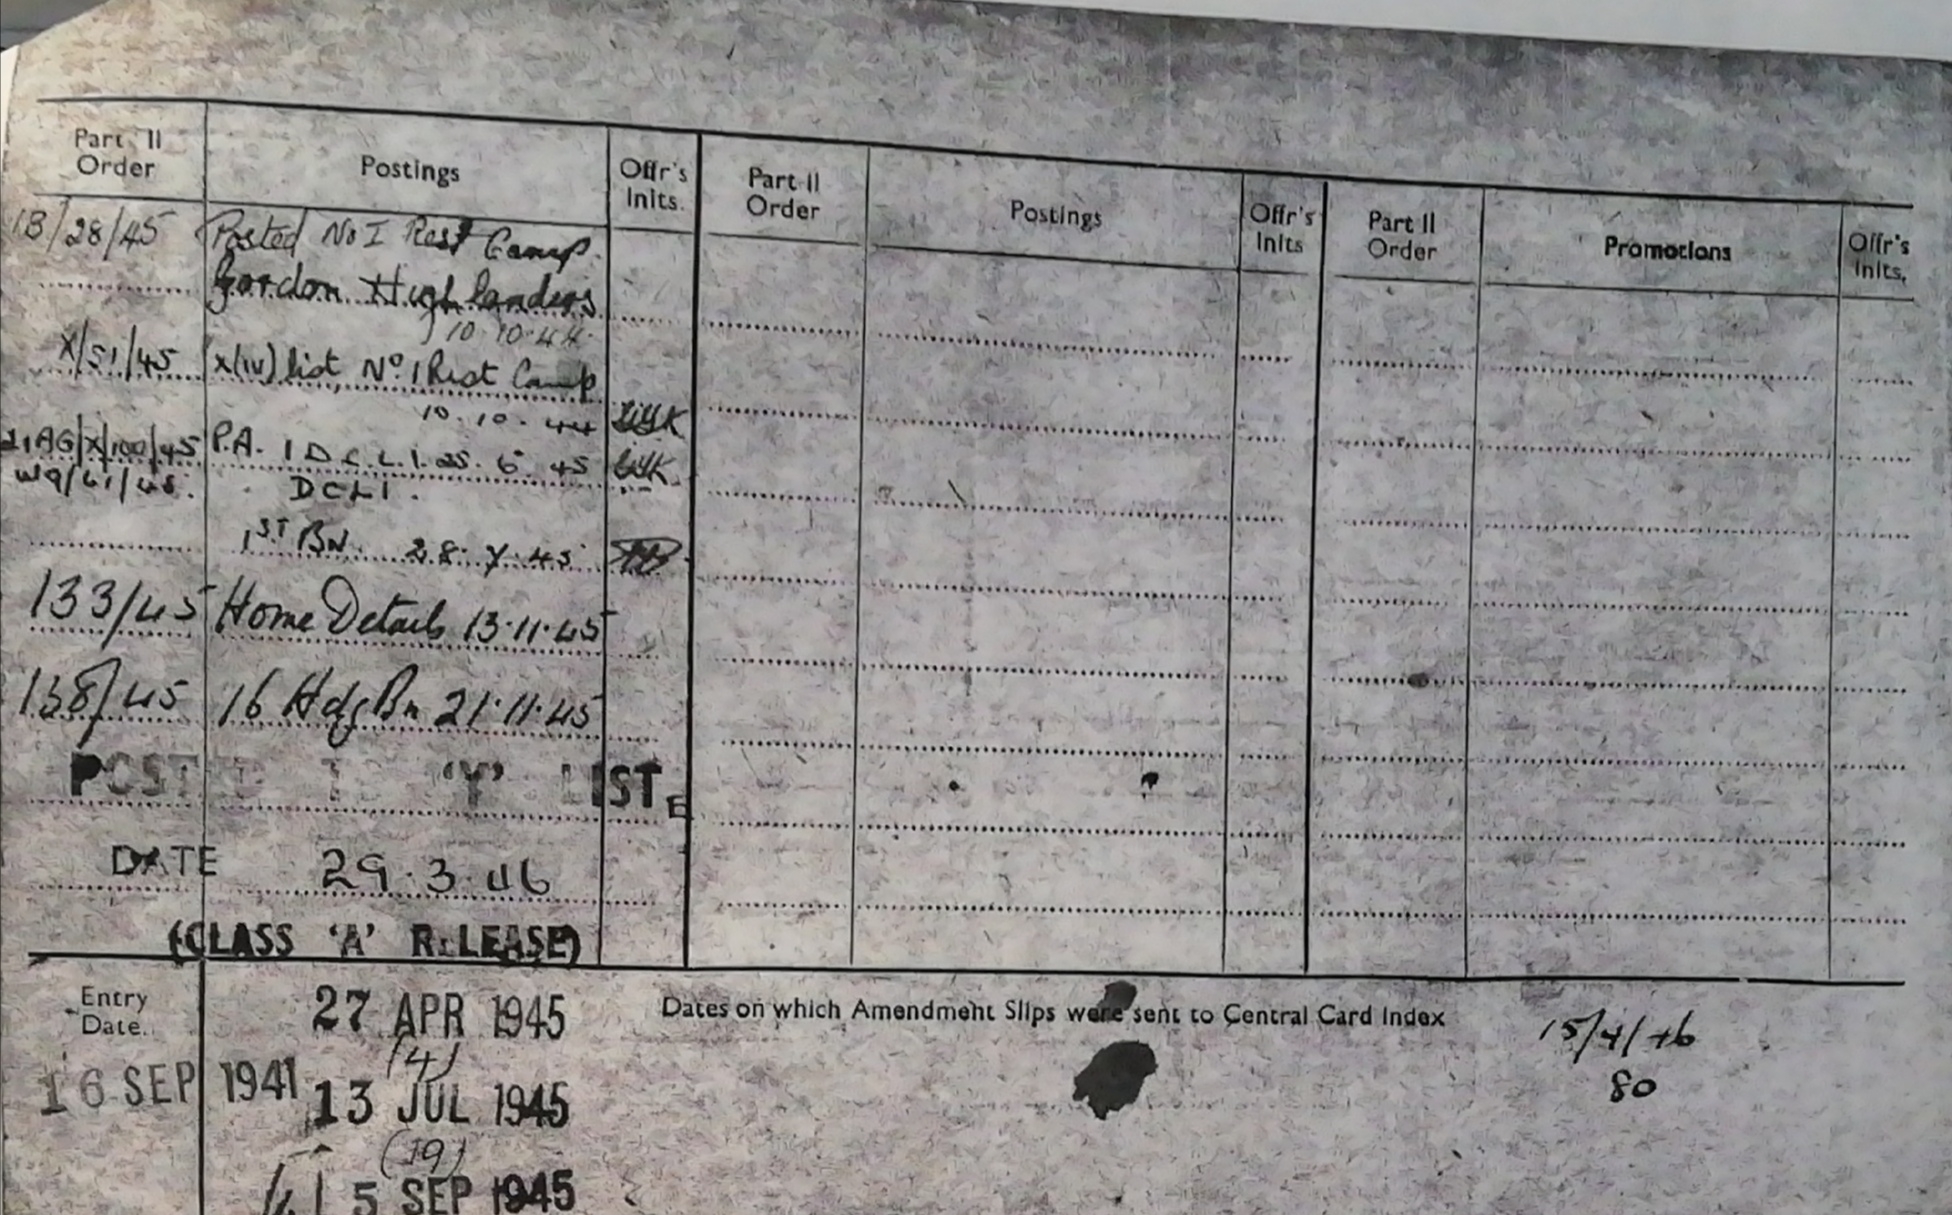 Part II Order Postings Offr's Inits. Part II Order Postings Offr's Inits Part II Order Promotions Offr's Inits.
1B/28/45 Posted No I Rest Camp.
Gordon Highlanders
10.10.44.
X/51/45 X(iv) list No. 1 Rest Camp
10.10.44
21AG/X/100/45 P.A. 1 D.C.L.I. 25.6.45
DCLI.
1ST BN. 28.7.45
133/45 Home Details 13.11.45
138/45 16 Hdg Bn 21.11.45
POSTED TO 'Y' LIST
DATE 29.3.46
(CLASS 'A' RELEASE)
Entry Date.
16 SEP 1941
27 APR 1945
(4)
13 JUL 1945
(19)
5 SEP 1945
Dates on which Amendment Slips were sent to Central Card Index
15/4/46
80